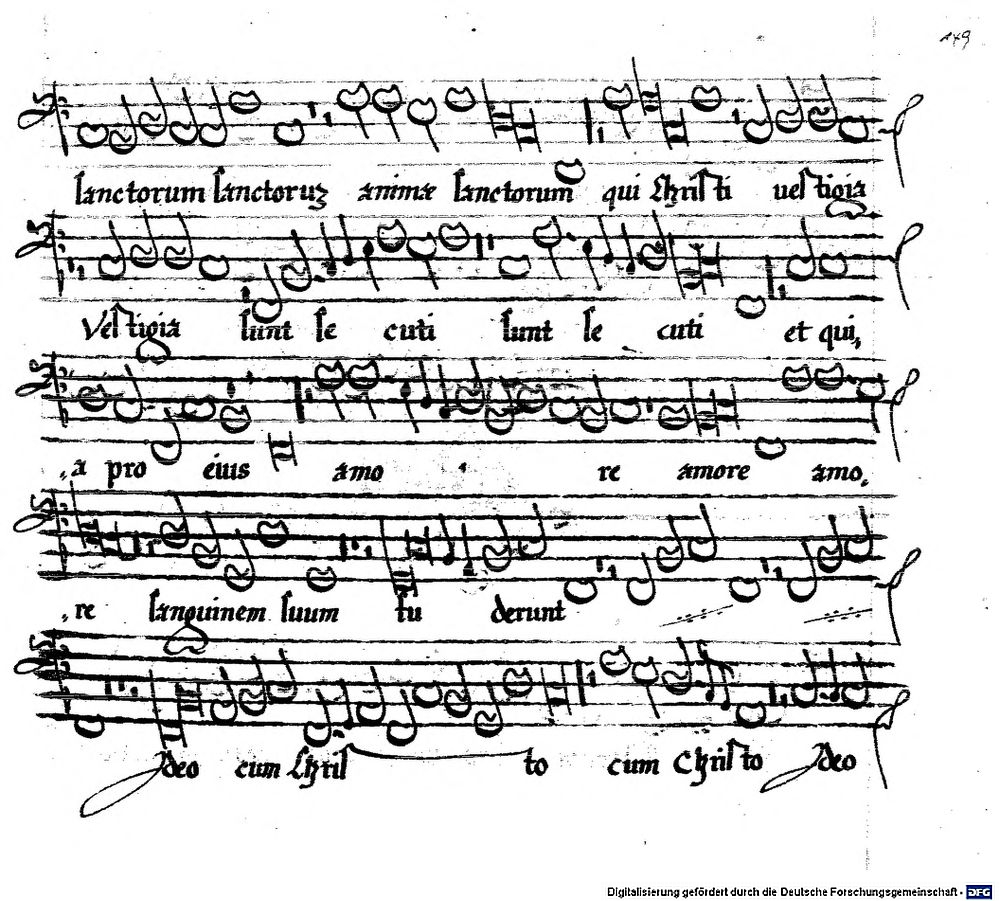 149
sanctorum sanctoruʒ animæ sanctorum qui Christi vestigia
Vestigia sunt se cuti sunt se cuti et qui,
,a pro eius amo re amore amo,
,re sanguinem suum fu derunt
Ideo cum Chris to cum Christo Ideo
Digitalisierung gefördert durch die Deutsche Forschungsgemeinschaft - DFG